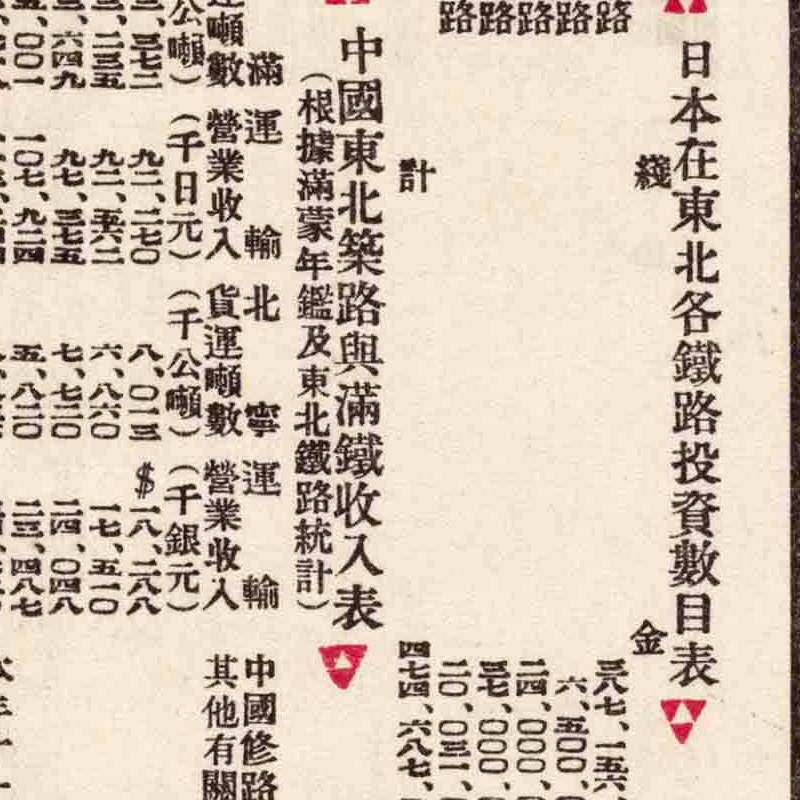 日本在東北各鐵路投資數目表
綫　金
路　三八七、一五六、
路　六、五〇〇、
路　二四、〇〇〇、
路　三七、〇〇〇、
路　二〇、〇三一、
計　四七四、六八七、
中國東北築路與滿鐵收入表
（根據滿蒙年鑑及東北鐵路統計）
滿　運輸　北寧　運輸　中國修路
噸數　營業收入　貨運噸數　營業收入　其他有關
公噸）　（千日元）　（千公噸）　（千銀元）
三七二　九二、二七〇　八、〇一三　$一八、二八八
二三五　九二、五六二　六、八六〇　一七、五一〇
六四九　九七、三七五　七、七二〇　二四、〇四八
〇〇一　一〇七、九二四　五、八二〇　二三、四八七